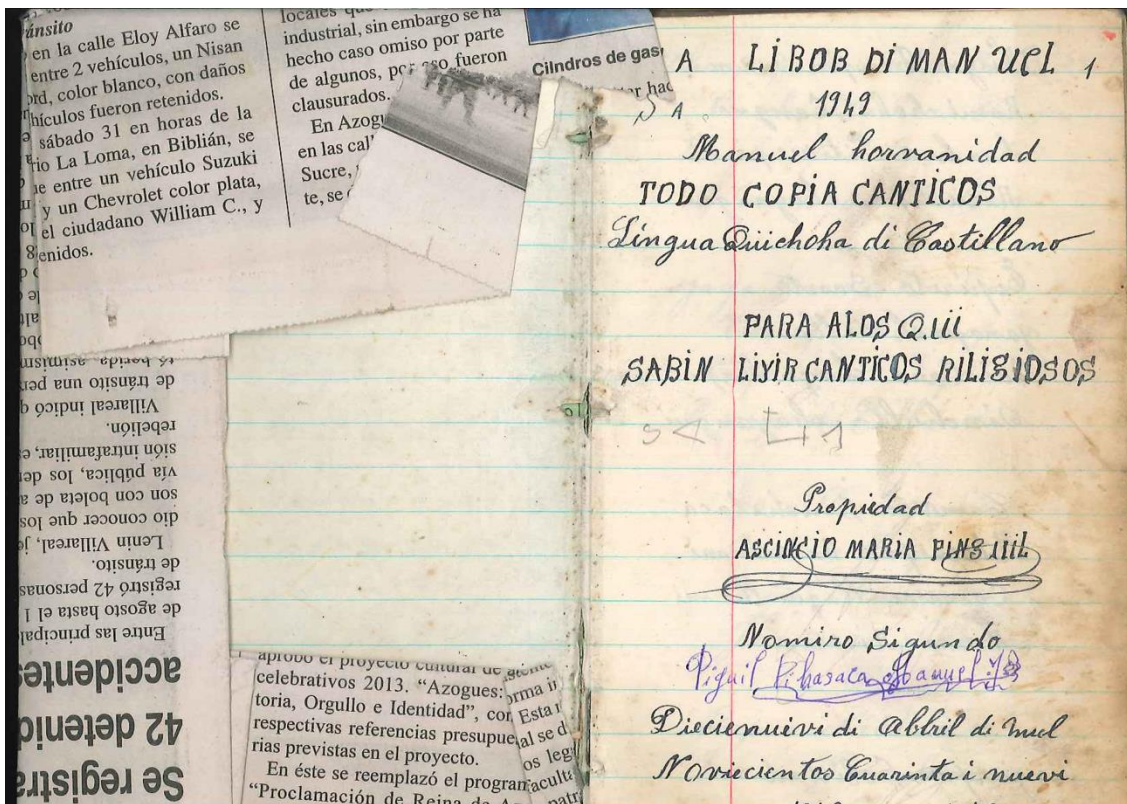 ánsito
en la calle Eloy Alfaro se
entre 2 vehículos, un Nisan
ord, color blanco, con daños
hículos fueron retenidos.
sábado 31 en horas de la
rio La Loma, en Biblián, se
e entre un vehículo Suzuki
y un Chevrolet color plata,
el ciudadano William C., y
enidos.
locales que
industrial, sin embargo se ha
hecho caso omiso por parte
de algunos, por eso fueron
clausurados.
En Azogu
en las call
Sucre,
te, se
Cilndros de gas
er hac
Se registra
42 detenid
accidentes
Entre las principale
de agosto hasta el 1
registró 42 personas
de tránsito.
Lenin Villareal, je
dio conocer que los
son con boleta de a
vía pública, los de
sión intrafamiliar, e
rebelión.
Villareal indicó q
de tránsito una per
tó herida, asimism
aprobó el proyecto cultural de
celebrativos 2013. "Azogues:
toria, Orgullo e Identidad", con
respectivas referencias presupue
rias previstas en el proyecto.
En éste se reemplazó el program
"Proclamación de Reina de
orma in
Esta
al se d
os leg
aculta
patr
A LIBOB DI MANUEL 1
S A. 1949
Manuel horvanidad
TODO COPIA CANTICOS
Lingua Quichoha di Castillano
PARA ALOS Q.iii
SABIN LIYIR CANTICOS RILIGIDSOS
Propiedad
ASCINCIO MARIA PINGiiiL
Nomiro Sigundo
Piguil Manuel
Diecienuivi di Abbril di mil
Noviecientos Cuarinta i nuevi